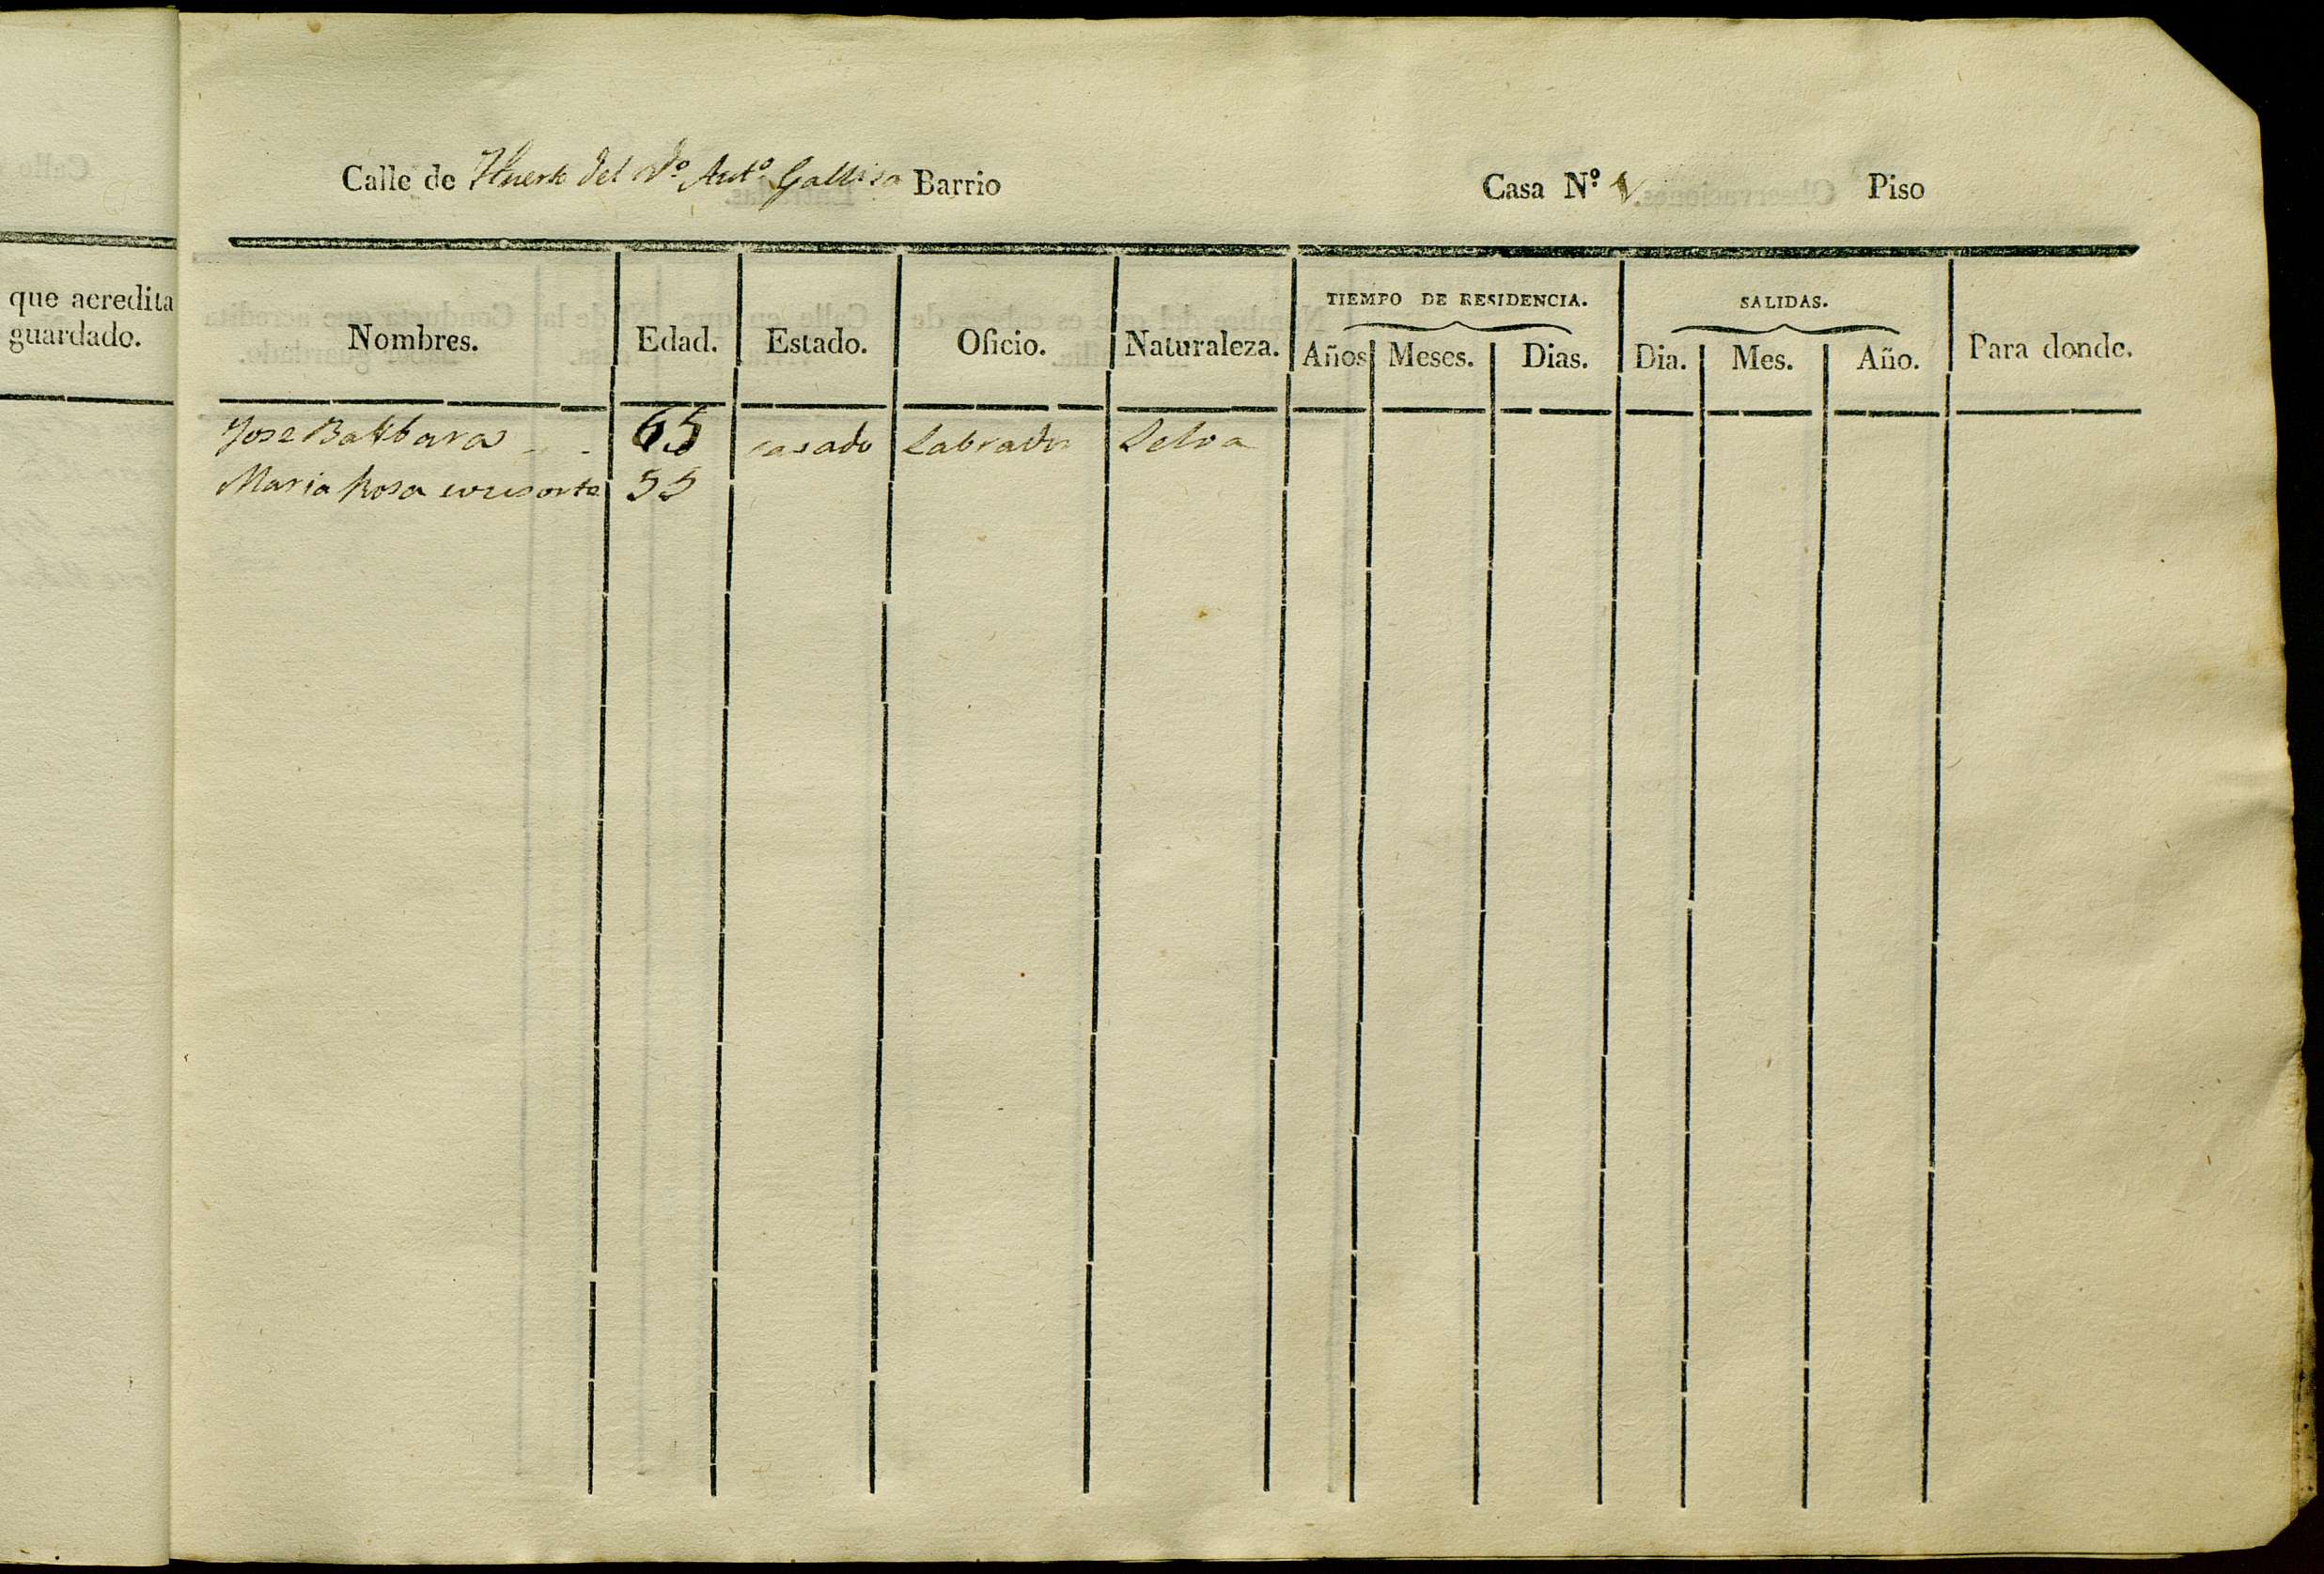 Calle de Huerto del Dº Antº Gallisa Barrio Casa N.º 1 Piso
que acredita
guardado.
TIEMPO DE RESIDENCIA. SALIDAS.
Nombres. Edad. Estado. Oficio. Naturaleza. Años Meses. Dias. Dia. Mes. Año. Para donde.
Jose Baltbara 65 casado Labrador Selva
Maria Rosa consorte 55